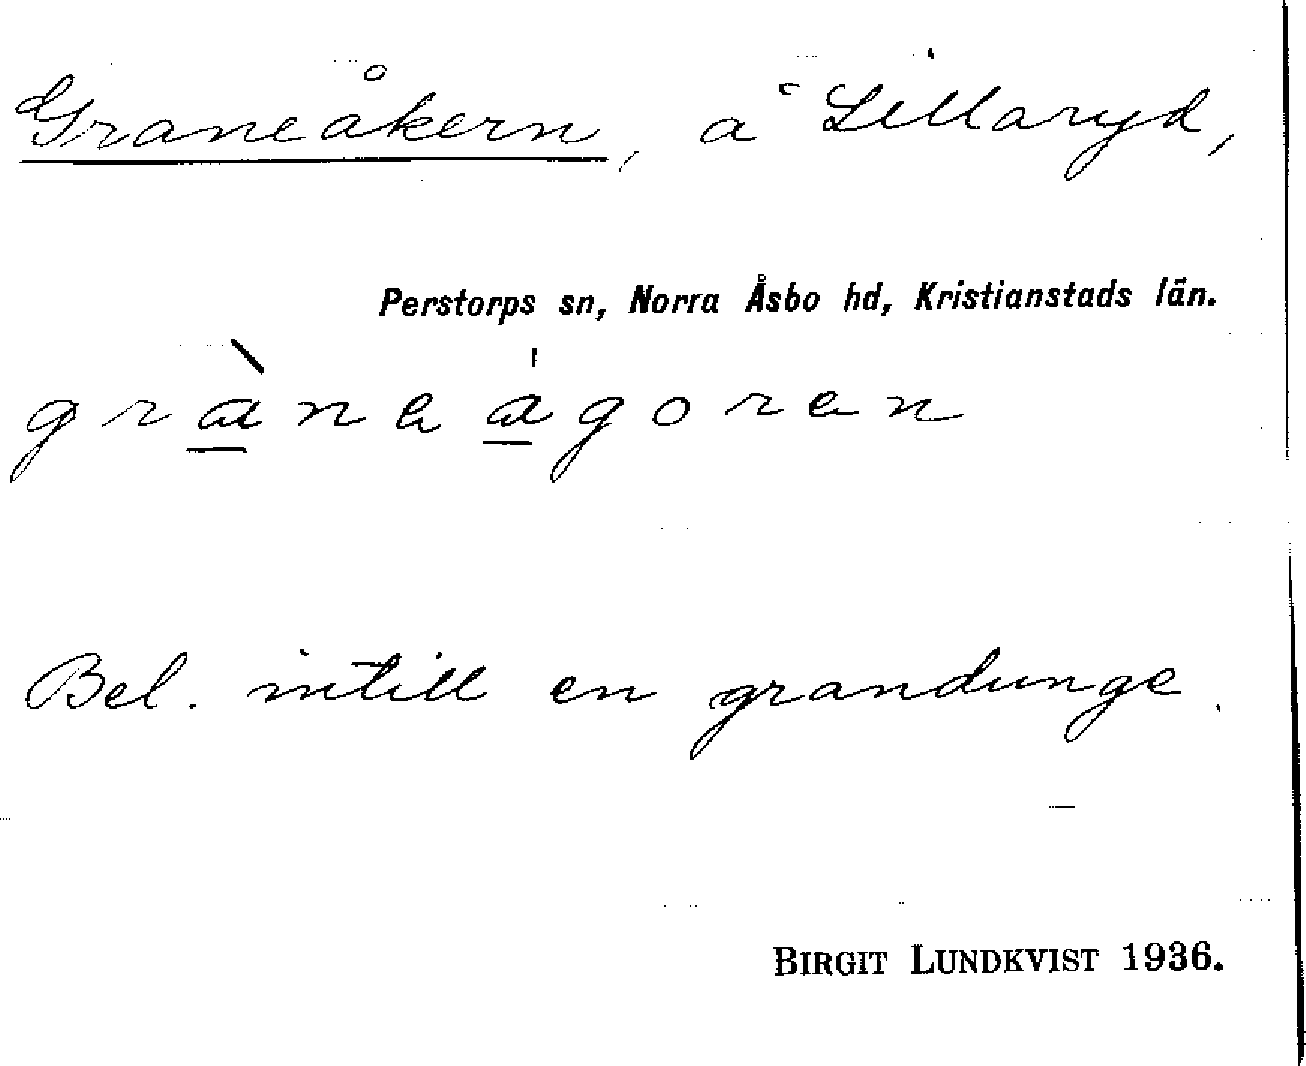 Graneåkern, å Lillaryd,
Perstorps sn, Norra Åsbo hd, Kristianstads län.
gràne ágoren
Bel. intill en grandunge.
BIRGIT LUNDKVIST 1936.